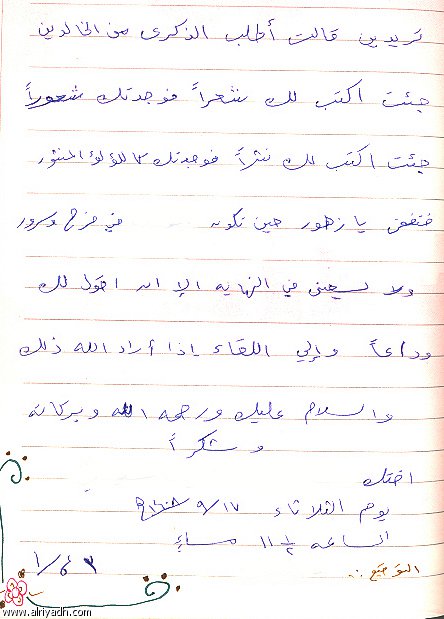 تريدين قالت أطلب الذكرى من الخالدين
جئت اكتب لك شعراً فوجدتك شعوراً
جئت اكتب لك نثراً فوجدتك كاللؤلؤ المنثور
يا زهور حين تكون في فرح وسرور
ولا يسعني في النهايه الا ان اقول لك
وداعاً وإلى اللقاء إذا أراد الله ذلك
والسلام عليك ورحمة الله وبركاته
وشكراً
اختك
يوم الثلاثاء ٩/١٧
الساعه ١١ ١/٢ مساءٍ
التوقيع
www.alriyadh.com